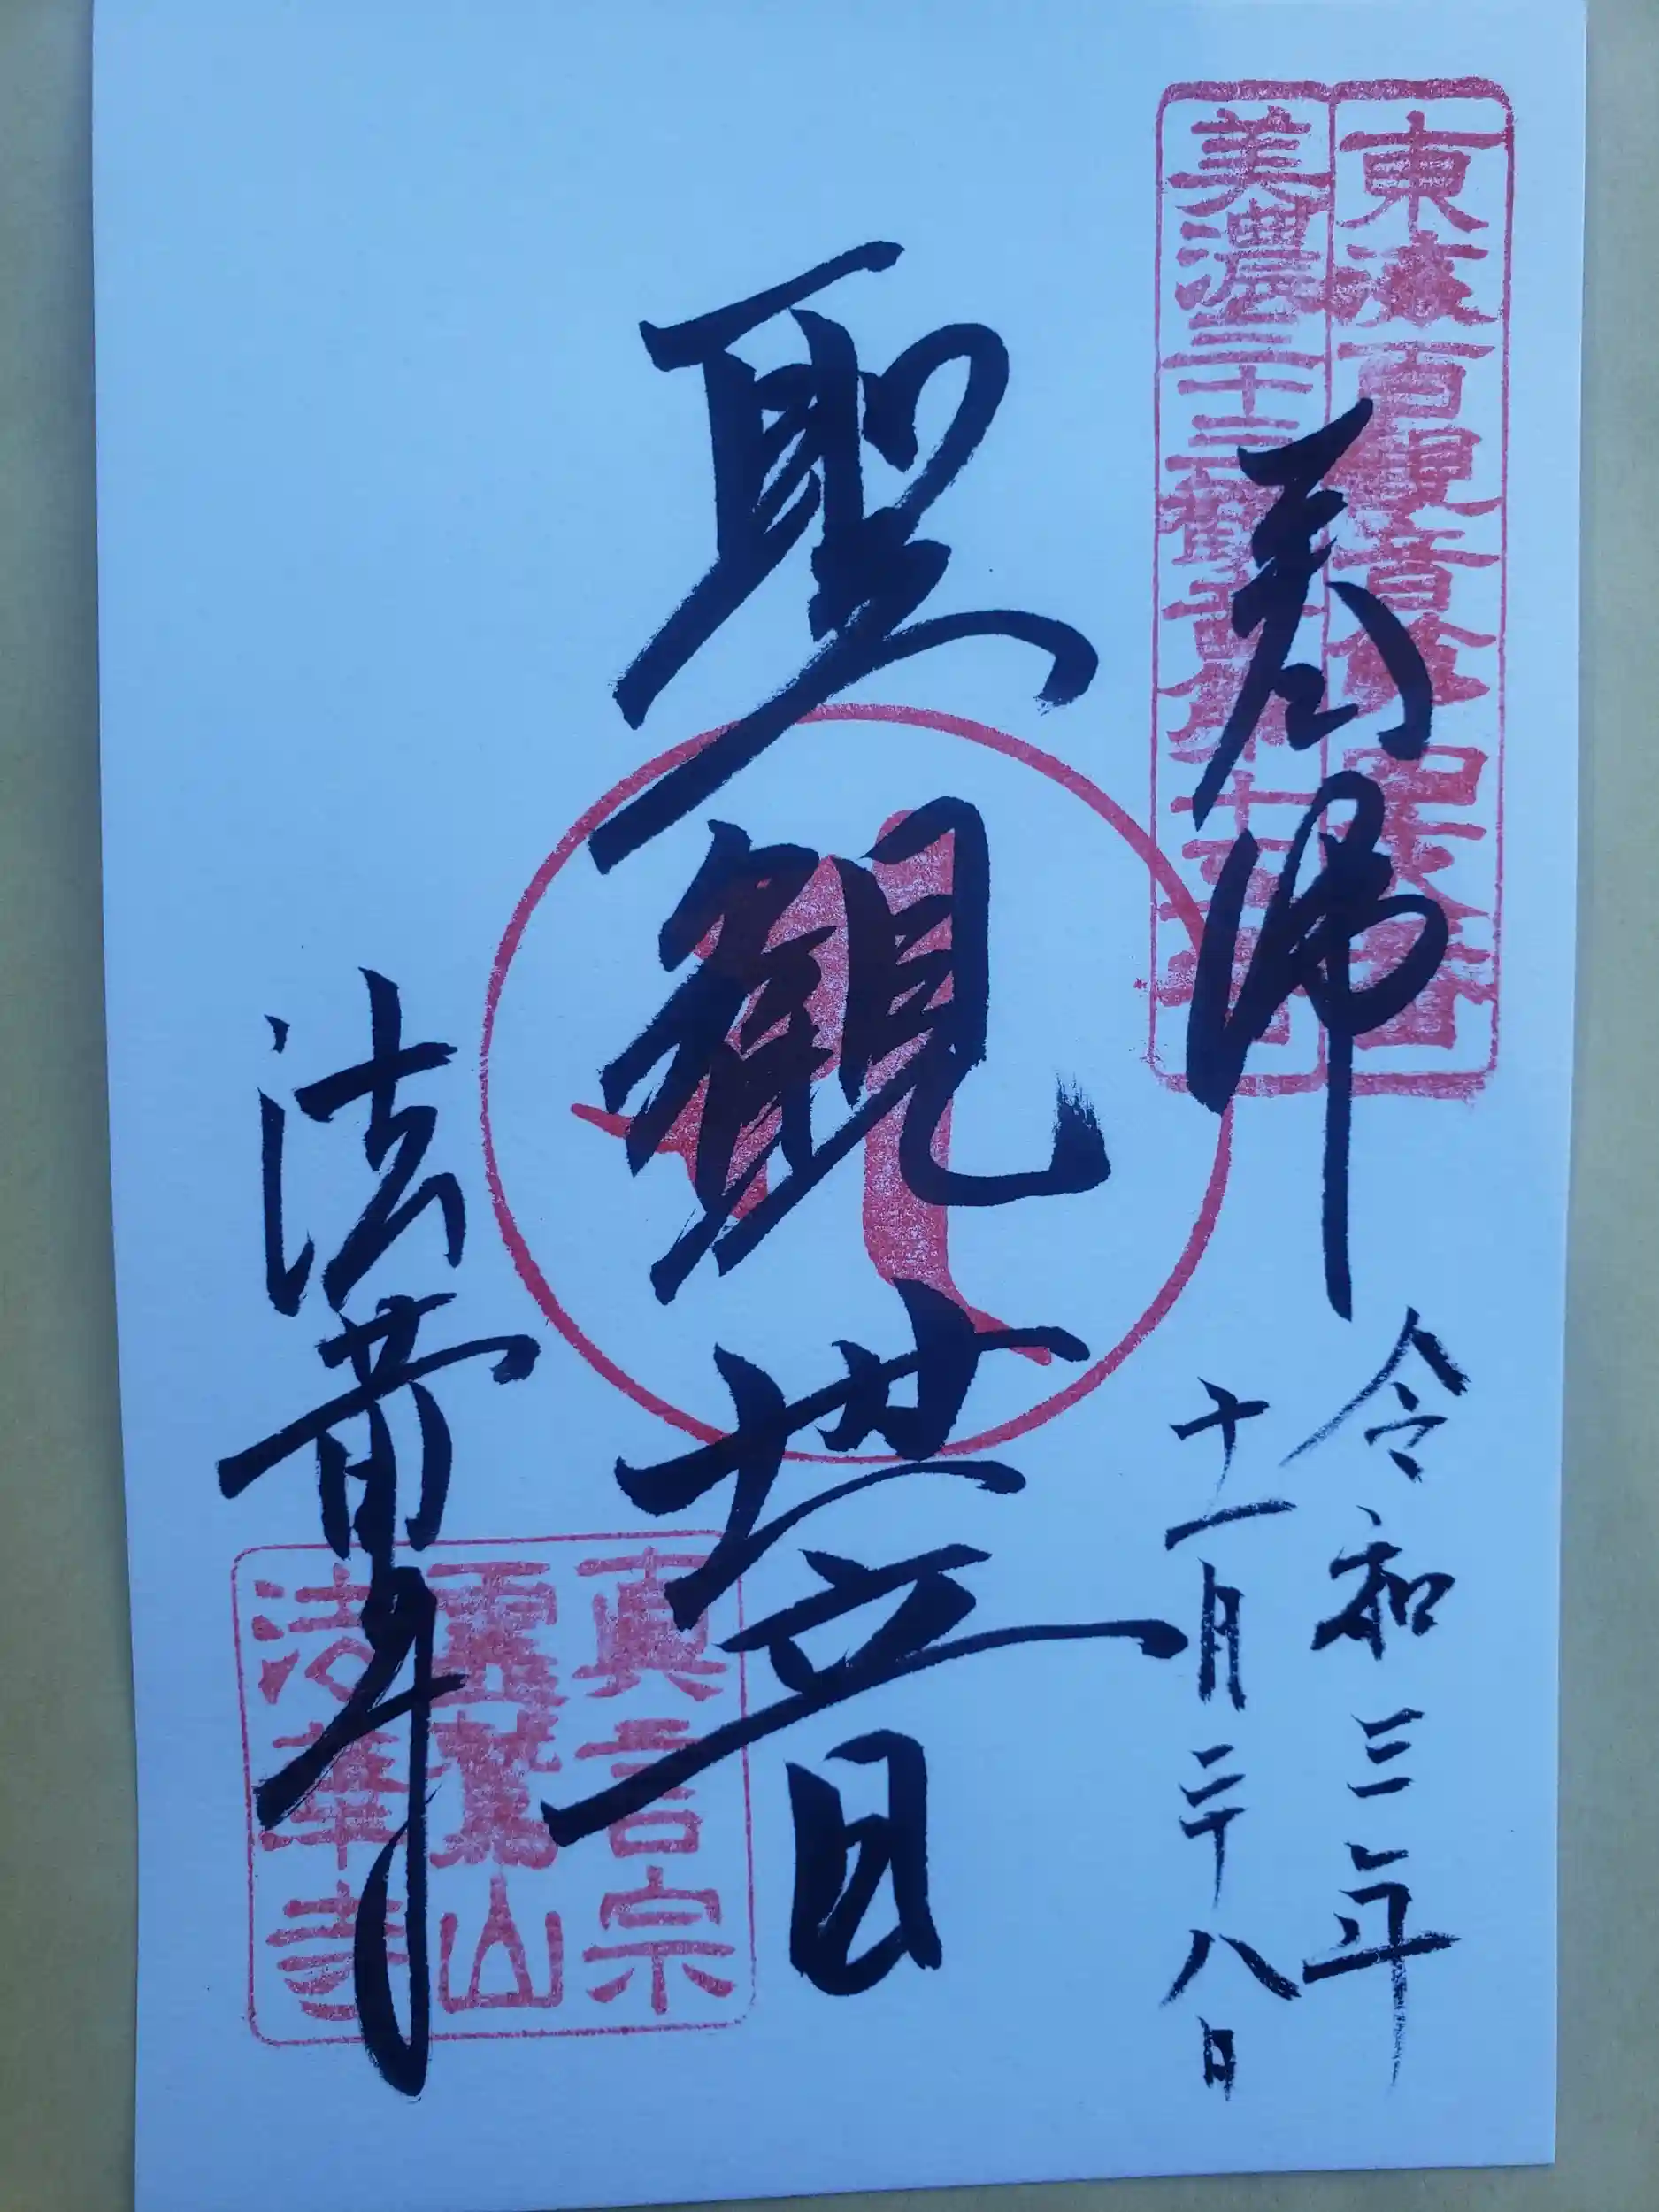 東海百観音
美濃三十三観
奉拝
令和三年
十一月二十八日
聖観世音
法華寺
真言宗
霊鷲山
法華寺